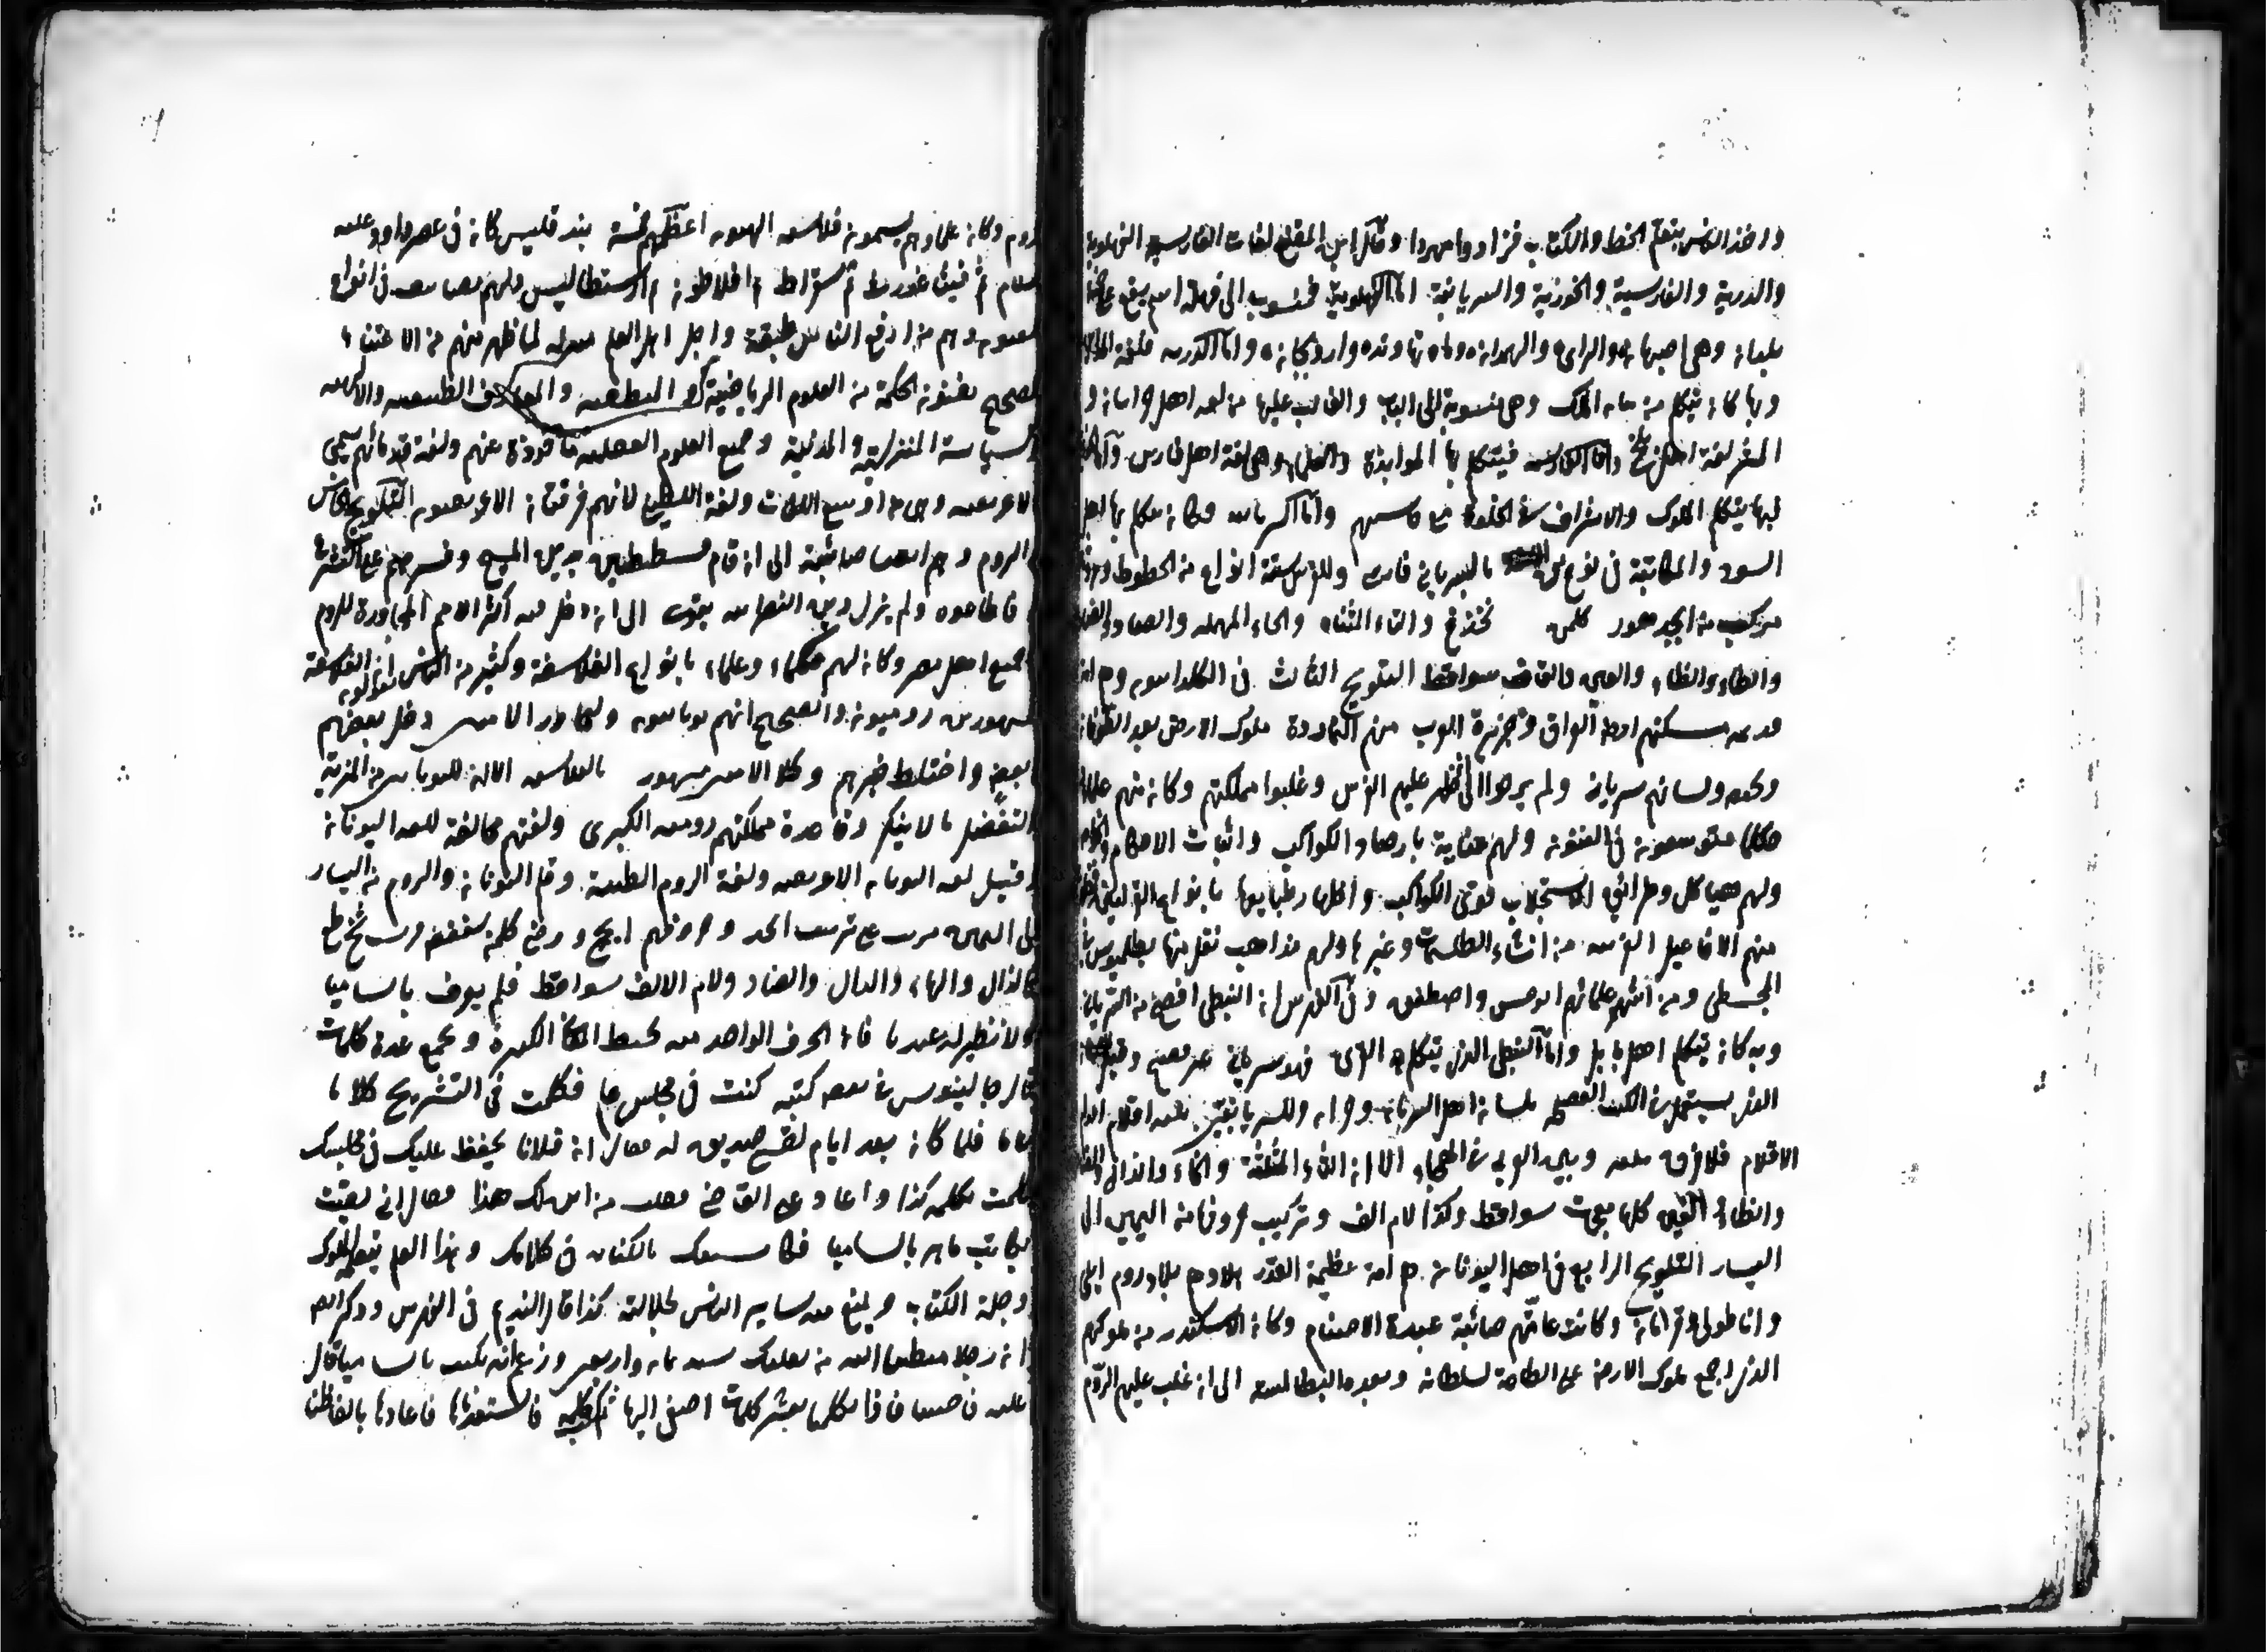 واخذ الناس بتعلم الخط والكتاب فزاد وا مهروا وقال ابن المقفع لغات الفارسية الفهلوية
والدرية والفارسية والخوزية والسريانية اما الفهلوية فمنسوب الى فهلة اسم يقع على خمسة
بلدان وهي اصبهان والراى وهمدان وماه نهاوند واذربيجان واما الدرية فلغة المداين
وبها كان يتكلم من بباب الملك وهي منسوبة الى الباب والغالب عليها من لغة اهل خراسان و
المشرق لغة اهل بلخ واما الفارسية فيتكلم بها الموابذة والعلماء وهي لغة اهل فارس واما الخوزية
فبها يتكلم الملوك والاشراف في الخلوة مع حاشيتهم واما السريانية فكان يتكلم بها اهل
السواد والمكاتبة في نوع من بالسرياني فارسي وللفرس ستة انواع من الخطوط وحروفهم
مركب من ابجد هوز كلمن ثخذغ والتاء المثناة والحاء المهملة والصاد والضاد
والطاء والظاء والعين والقاف سواقط التلويح الثالث في الكلدانيون وهم امة
قديمة مسكنهم ارض العراق وجزيرة العرب منهم النماردة ملوك الارض بعد الطوفان
ولسانهم سرياني ولم يبرحوا الى ان ظهر عليهم الفرس وغلبوا مملكتهم وكان منهم علماء
حكماء متوسعون في الفنون ولهم عناية بارصاد الكواكب واثبات الاحكام والخواص
ولهم هياكل وطرائق لاستجلاب قوى الكواكب واظهار طبايعها بانواع القرابين فظهر
منهم الافاعيل الغريبة من انشاء الطلسمات وغيرها ولهم مذاهب نقل منها بطلميوس في
المجسطي ومن اشهر علمائهم ابرخس واصطفن وفي الفهرس ان النبطي افصح من السرياني
وبه كان يتكلم اهل بابل واما النبطي الذي يتكلم به القرى فهو سرياني غير فصيح وقيل
الذي يستعمل في الكتب الفصيح بلسان اهل السريان وحران وللسريانيين ثلثة اقلام اقدم
الاقلام فلا فرق بينه وبين العربي في الهجاء الا ان الثاء المثلثة والخاء والذال والضاد
والظاء والغين كلها معجمات سواقط وكذا لام الف وتركيب حروفها من اليمين الى
اليسار التلويح الرابع في اهل اليونان هم امة عظيمة القدر بلادهم بلاد روم ايلي
واناطولى وقرامان وكانت عامتهم صائبة عبدة الاصنام وكان الاسكندر من ملوكهم
الذي اجمع ملوك الارض على الطاعة لسلطانه وبعده البطالسة الى ان غلب عليهم الروم
روم وكان علماؤهم يسمون فلاسفة الهيون اعظمهم خمسة بندقليس كان في عصر داود عليه
السلام ثم فيثاغورس ثم سقراط ثم افلاطون ثم ارسطاطاليس ولهم تصانيف في انواع
الفنون وهم من ارفع الناس طبقة واجل اهل العلم منزلة لما ظهر منهم من الاعتناء
الصحيح بفنون الحكمة من العلوم الرياضية والمنطقية والمعارف الطبيعية والالهية
والسياسة المنزلية والمدنية وجميع العلوم العقلية مأخوذة عنهم ولغة قدمائهم تسمى
الاغريقية وهي من اوسع اللغات ولغة المتاخرين اللطيني لانهم فرقتان الاغريقيون التلويح الخامس
الروم وهم ايضا صائبة الى ان قام قسطنطين بدين المسيح وقسرهم على التشرع
فاطاعوه ولم يزل دين النصرانية يقوى الى ان دخل فيه اكثر الامم المجاورة للروم
جميع اهل مصر وكان لهم حكماء وعلماء بانواع الفلسفة وكثير من الناس يقولون ان الفلاسفة
المشهورين روميون والصحيح انهم يونانيون ولتجاور الامتين دخل بعضهم
بعض واختلط خبرهم وكلا الامتين مشهور بالفلسفة الا ان لليونانيين من المزية
التفضيل ما لا ينكر وقاعدة مملكتهم رومية الكبرى ولغتهم مخالفة للغة اليونان
وقيل لغة اليونان الاغريقية ولغة الروم اللطينية وقلم اليونان والروم من اليسار
الى اليمين مرتب على ترتيب ابجد وحروفهم ابج و زطي كلمن سعفص قرشت ثخ ظغ
فالدال والهاء والذال والضاد ولام الالف سواقط قلم يعرف بالساميا
ولا نظير له عندنا فان الحرف الواحد منه يحيط المعاني الكثيرة ويجمع عدة كلمات
قال جالينوس في بعض كتبه كنت في مجلس عام فتكلمت في التشريح كلاما
عاما فلما كان بعد ايام لقيني صديق لي فقال ان فلانا يحفظ عليك في مجلسك
تكلمت بكلمة كذا واعاد على الفاظي فقلت من اين لك هذا فقال اني لقيت
بكاتب ماهر بالساميا فكان يسبقك بالكتابة في كلامك وهذا العلم يتعلمه الملوك
وجلة الكتاب ويمنع منه ساير الناس لجلالته كذا قال النديم في الفهرس وذكر ايضا
ان رجلا متطببا اليه من بعلبك سنة ثمان واربعين وزعم انه يكتب بالساميا قال
عليه فاصبنا فاذا تكلمنا بعشر كلمات اصغى اليها ثم كتب كلمة فاستعدناها فاعادها بالفاظنا